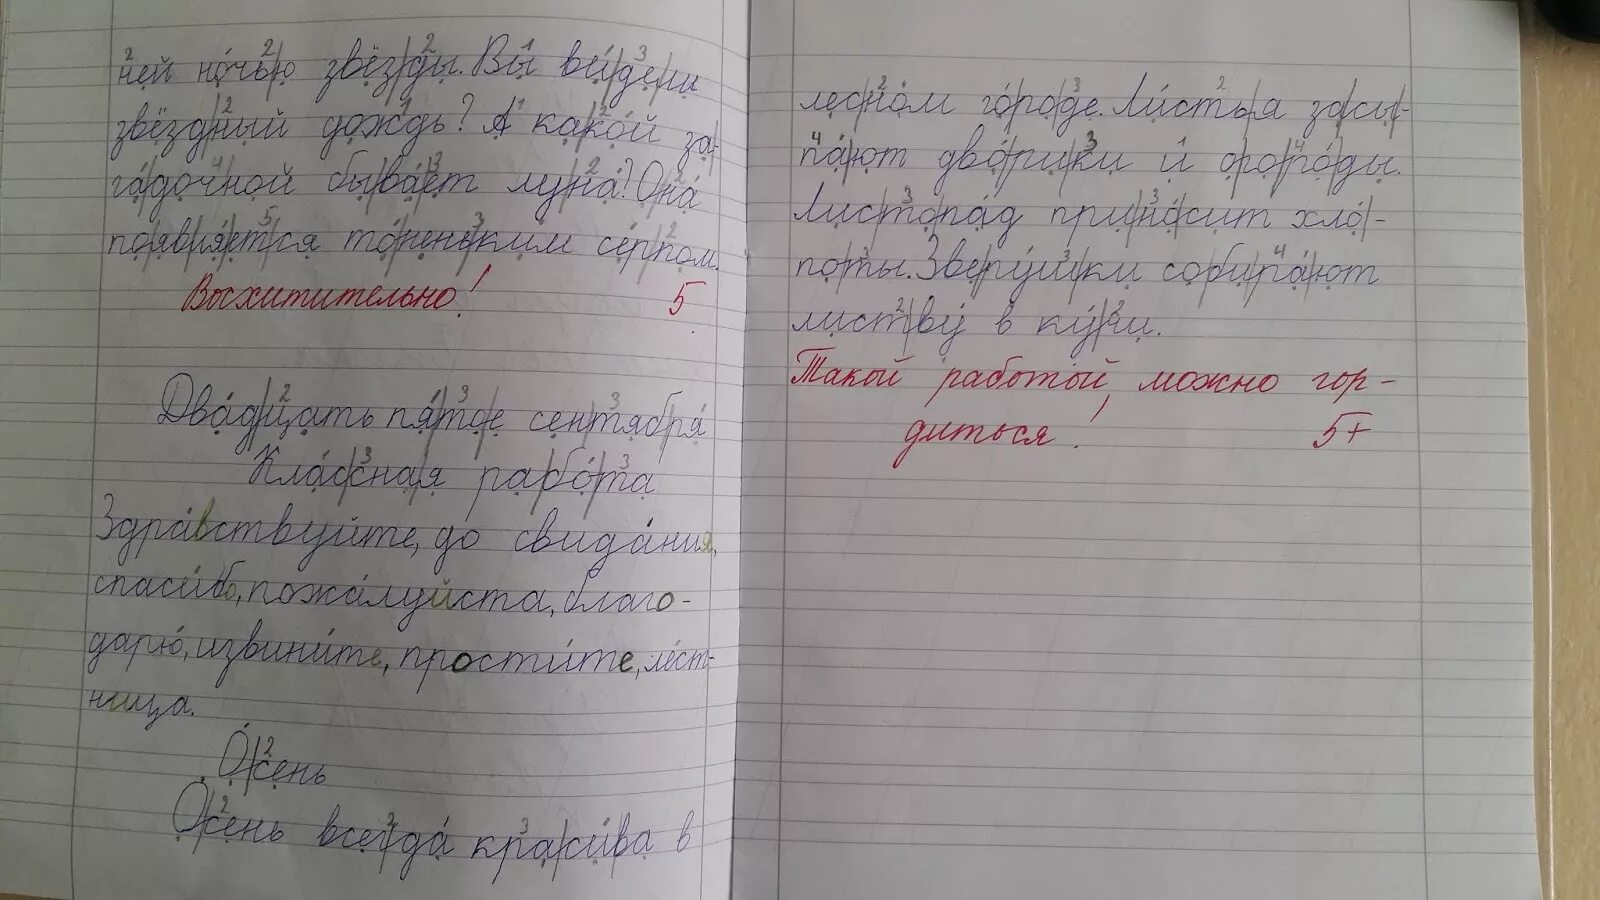 ней ночью звёзды. Вы видели
звёздный дождь? А какой за-
гадочной бывает луна? Она
появляется тоненьким серпом.
Восхитительно! 5
Двадцать пятое сентября
Классная работа
Здравствуйте, до свидания,
спасибо, пожалуйста, благо-
дарю, извините, простите, лест-
ница.
Осень
Осень всегда красива в
лесном городе. Листья засы-
пают дворики и огороды.
Листопад приносит хло-
поты. Зверушки собирают
листву в кучи.
Такой работой можно гор-
диться! 5+